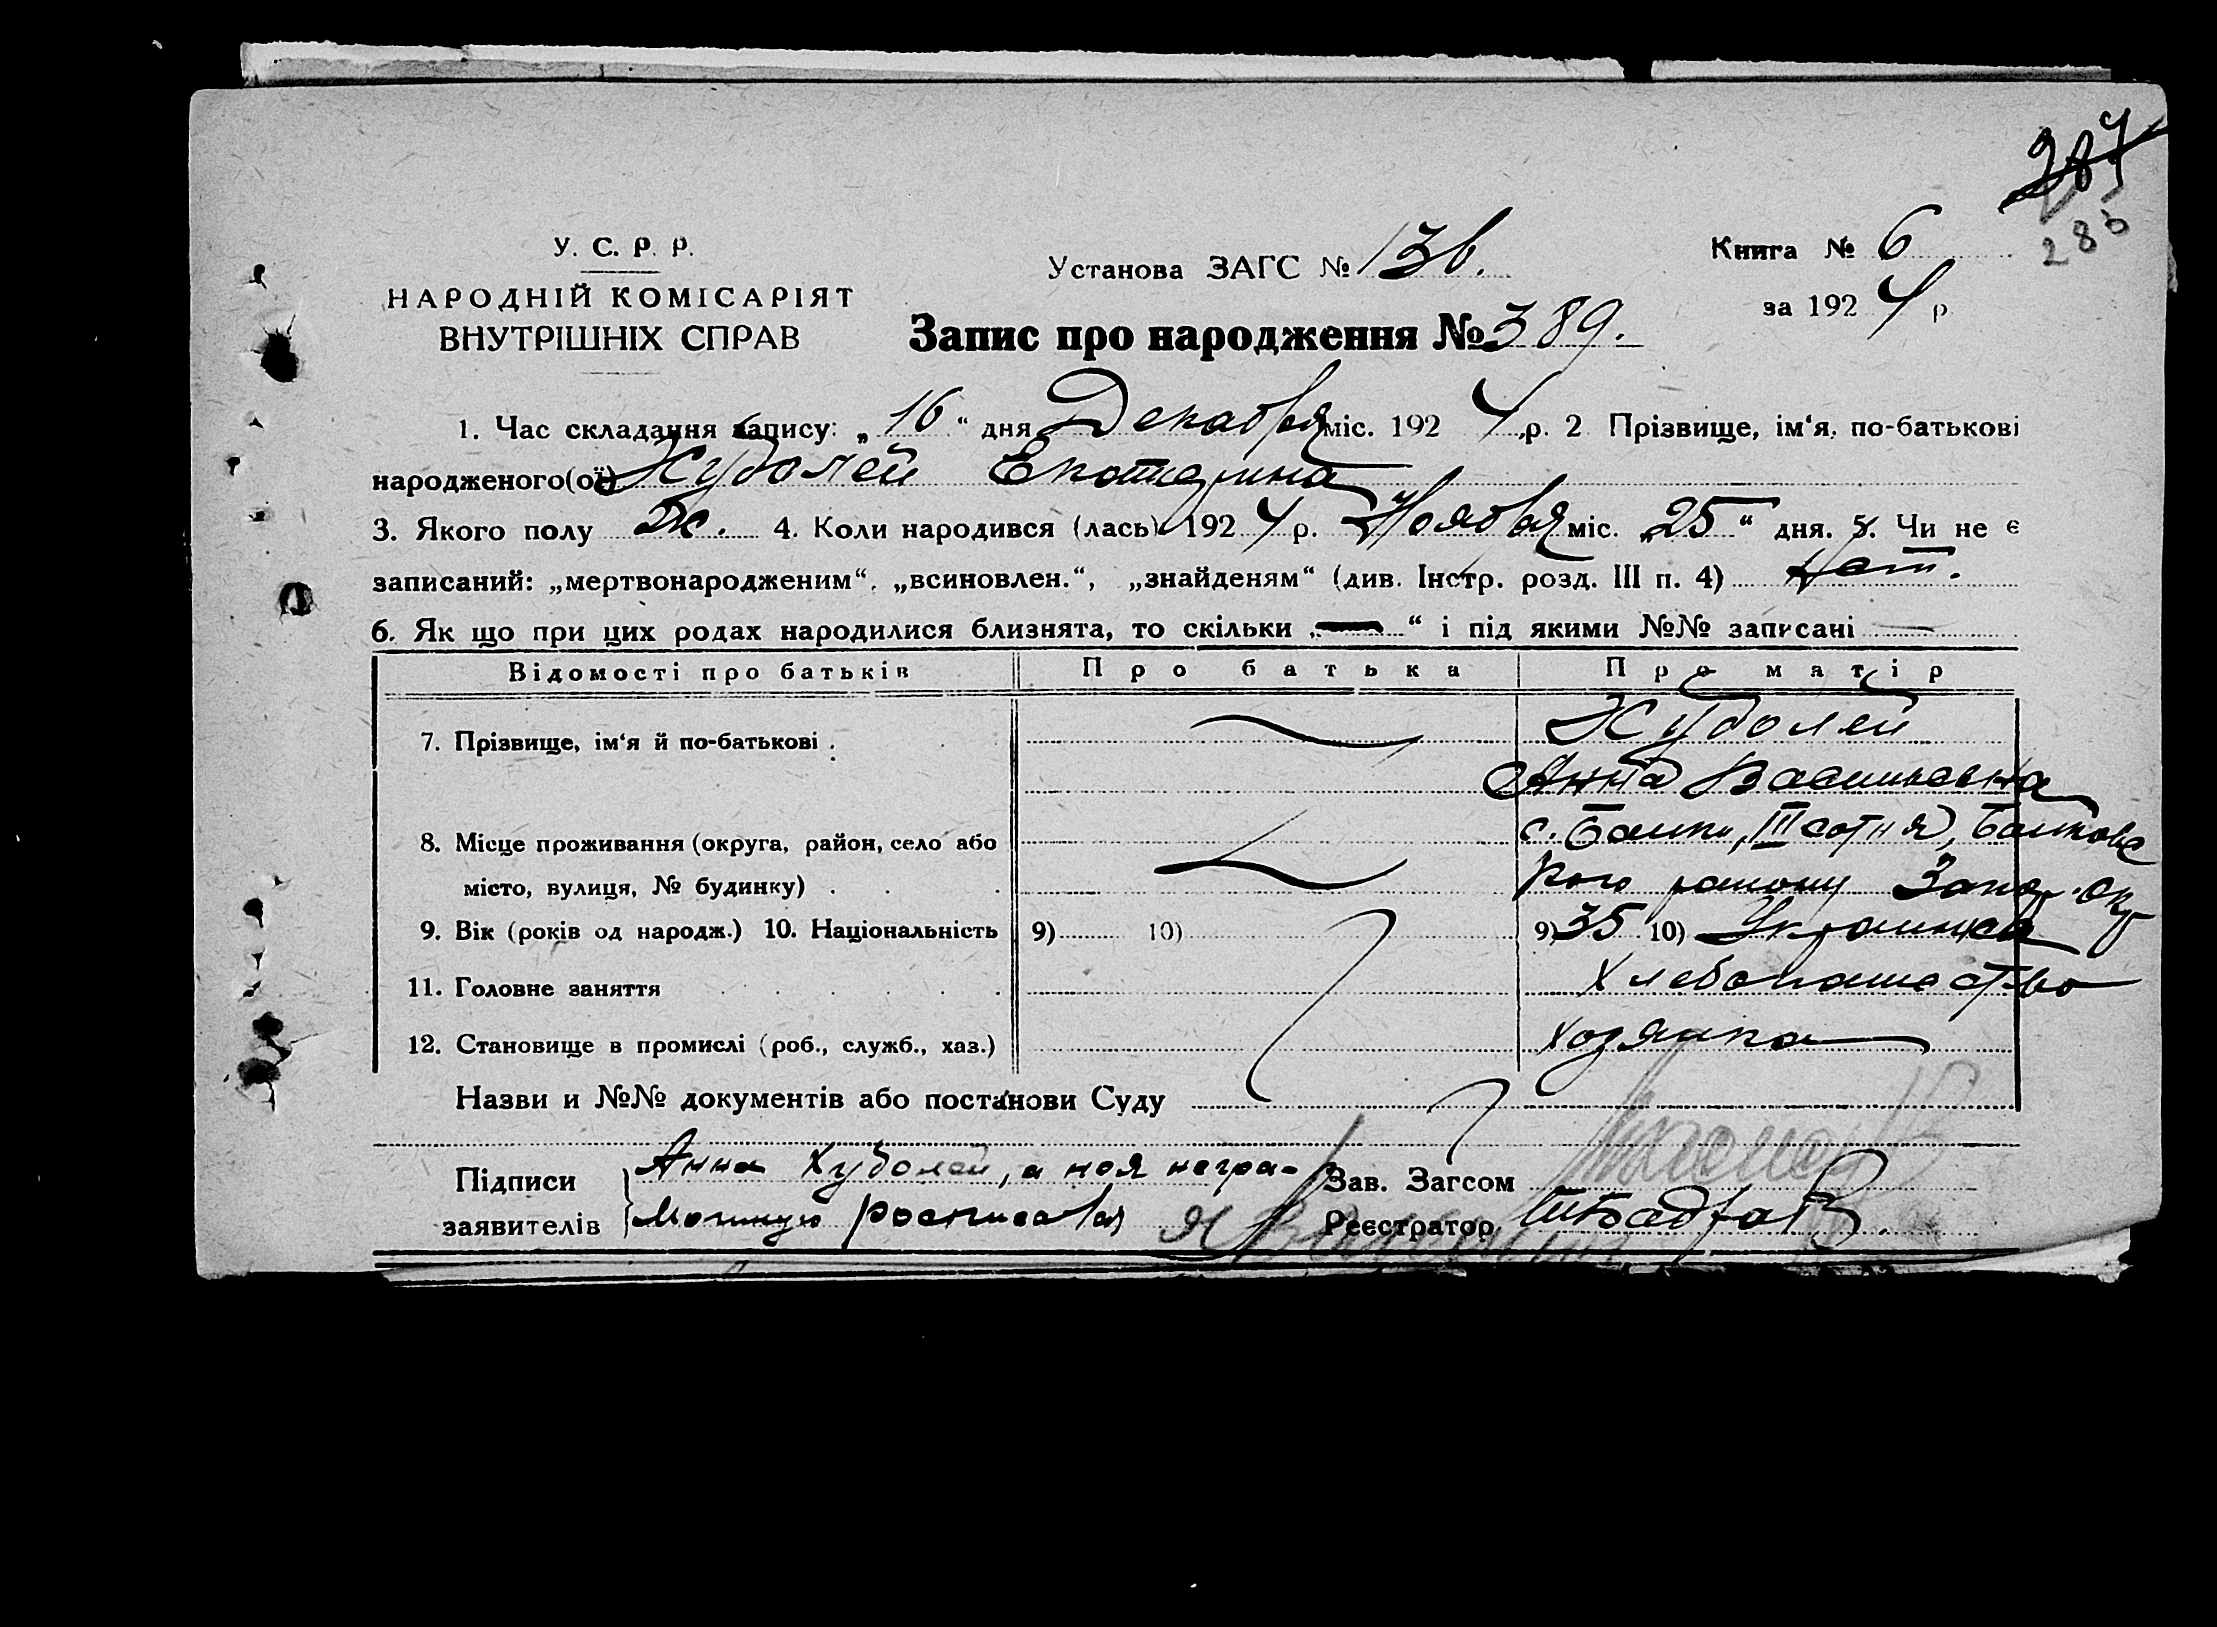 287
285
У. С. Р. Р.
НАРОДНІЙ КОМІСАРІЯТ
ВНУТРІШНІХ СПРАВ
Установа ЗАГС № 136.
Книга № 6
за 1924 р
Запис про народження № 389.
1. Час складання запису: „16“ дня Декабря міс. 1924 р. 2 Прізвище, ім‘я, по-батькові
народженого(ої) Худолей Екатерина
3. Якого полу Ж. 4. Коли народився (лась) 1924 р. Ноября міс. „25“ дня. 5. Чи не є
записаний: „мертвонародженим“, „всиновлен.“, „знайденям“ (див. Інстр. розд. III п. 4) Нет.
6. Як що при цих родах народилися близнята, то скільки „—“ і під якими №№ записані —
Відомості про батьків Про батька Про матір
7. Прізвище, ім‘я й по-батькові . Худолей
Анна Васильевна
8. Місце проживання (округа, район, село або с. Балки, III сотня, Балковс
місто, вулиця, № будинку) . кого району Запор. окр
9. Вік (років од народж.) 10. Національність 9) 10) 9) 35 10) Украинка
11. Головне заняття Хлебопашество
12. Становище в промислі (роб., служб., хаз.) хозяйка
Назви и №№ документів або постанови Суду
Підписи Анна Худолей, а ноя негра- Зав. Загсом
заявителів мотную росписався Реєстратор